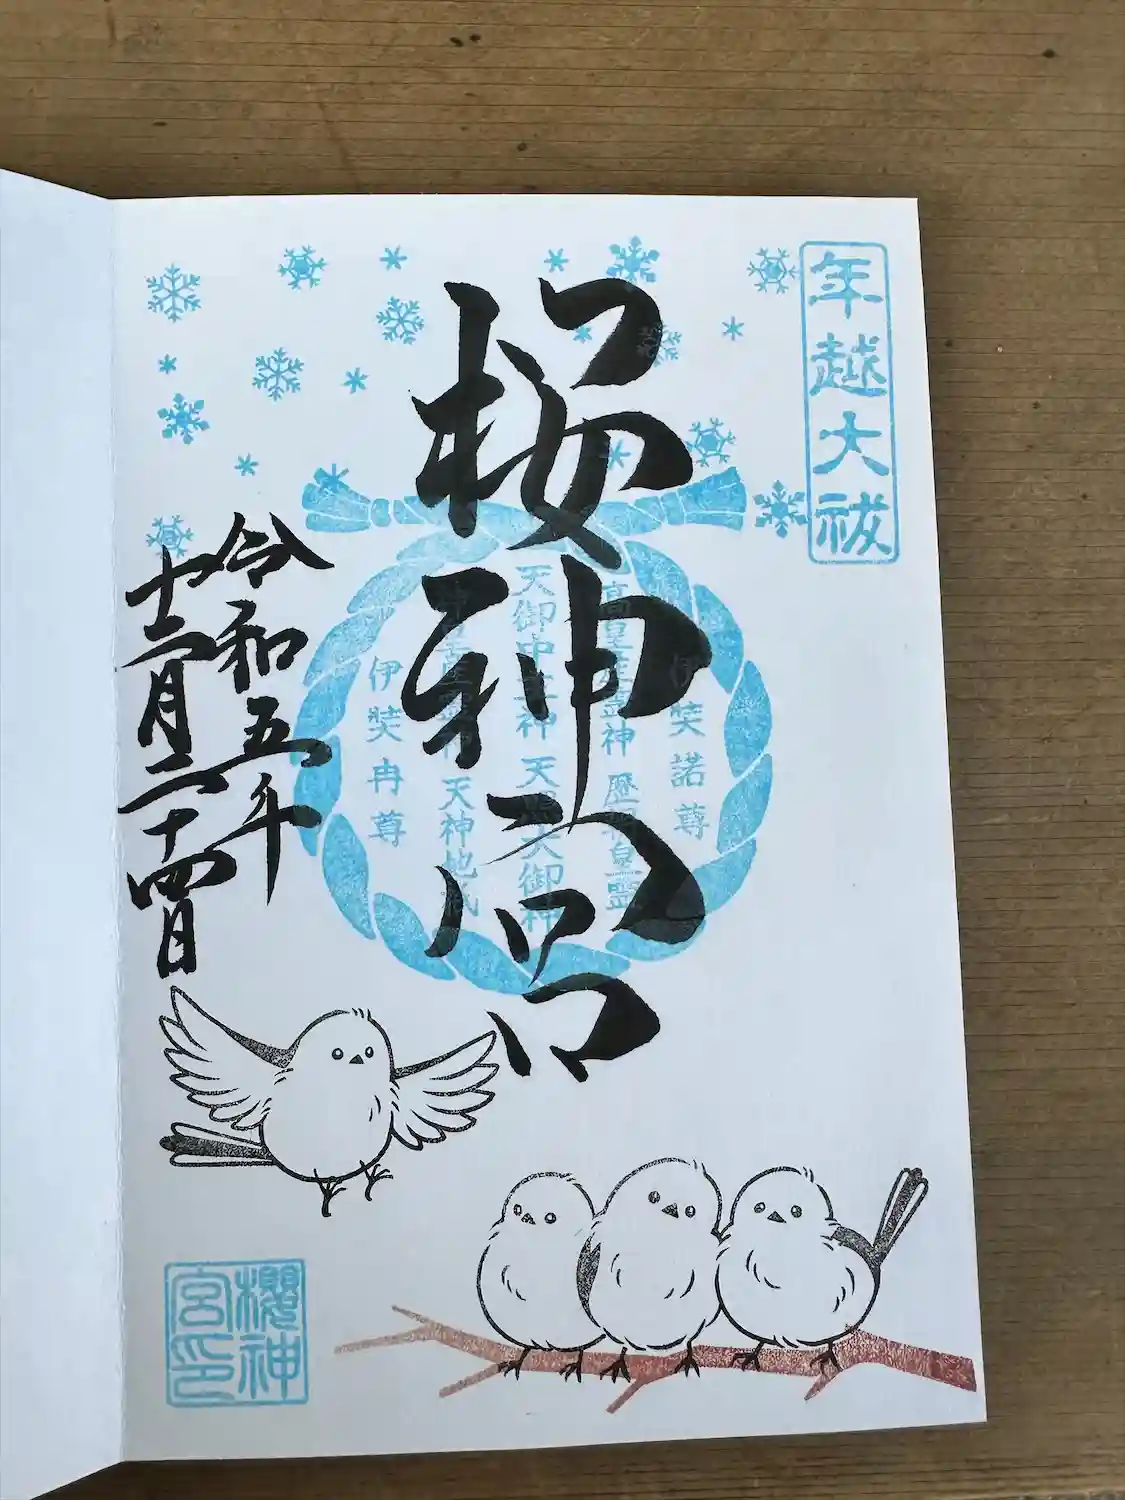 年越大祓
桜神宮
伊奘諾尊
高皇産霊神 歴朝皇霊
天御中主神 天照大御神
神皇産霊神 天神地祇
伊奘冉尊
令和五年
十二月二十四日
櫻神
宮印